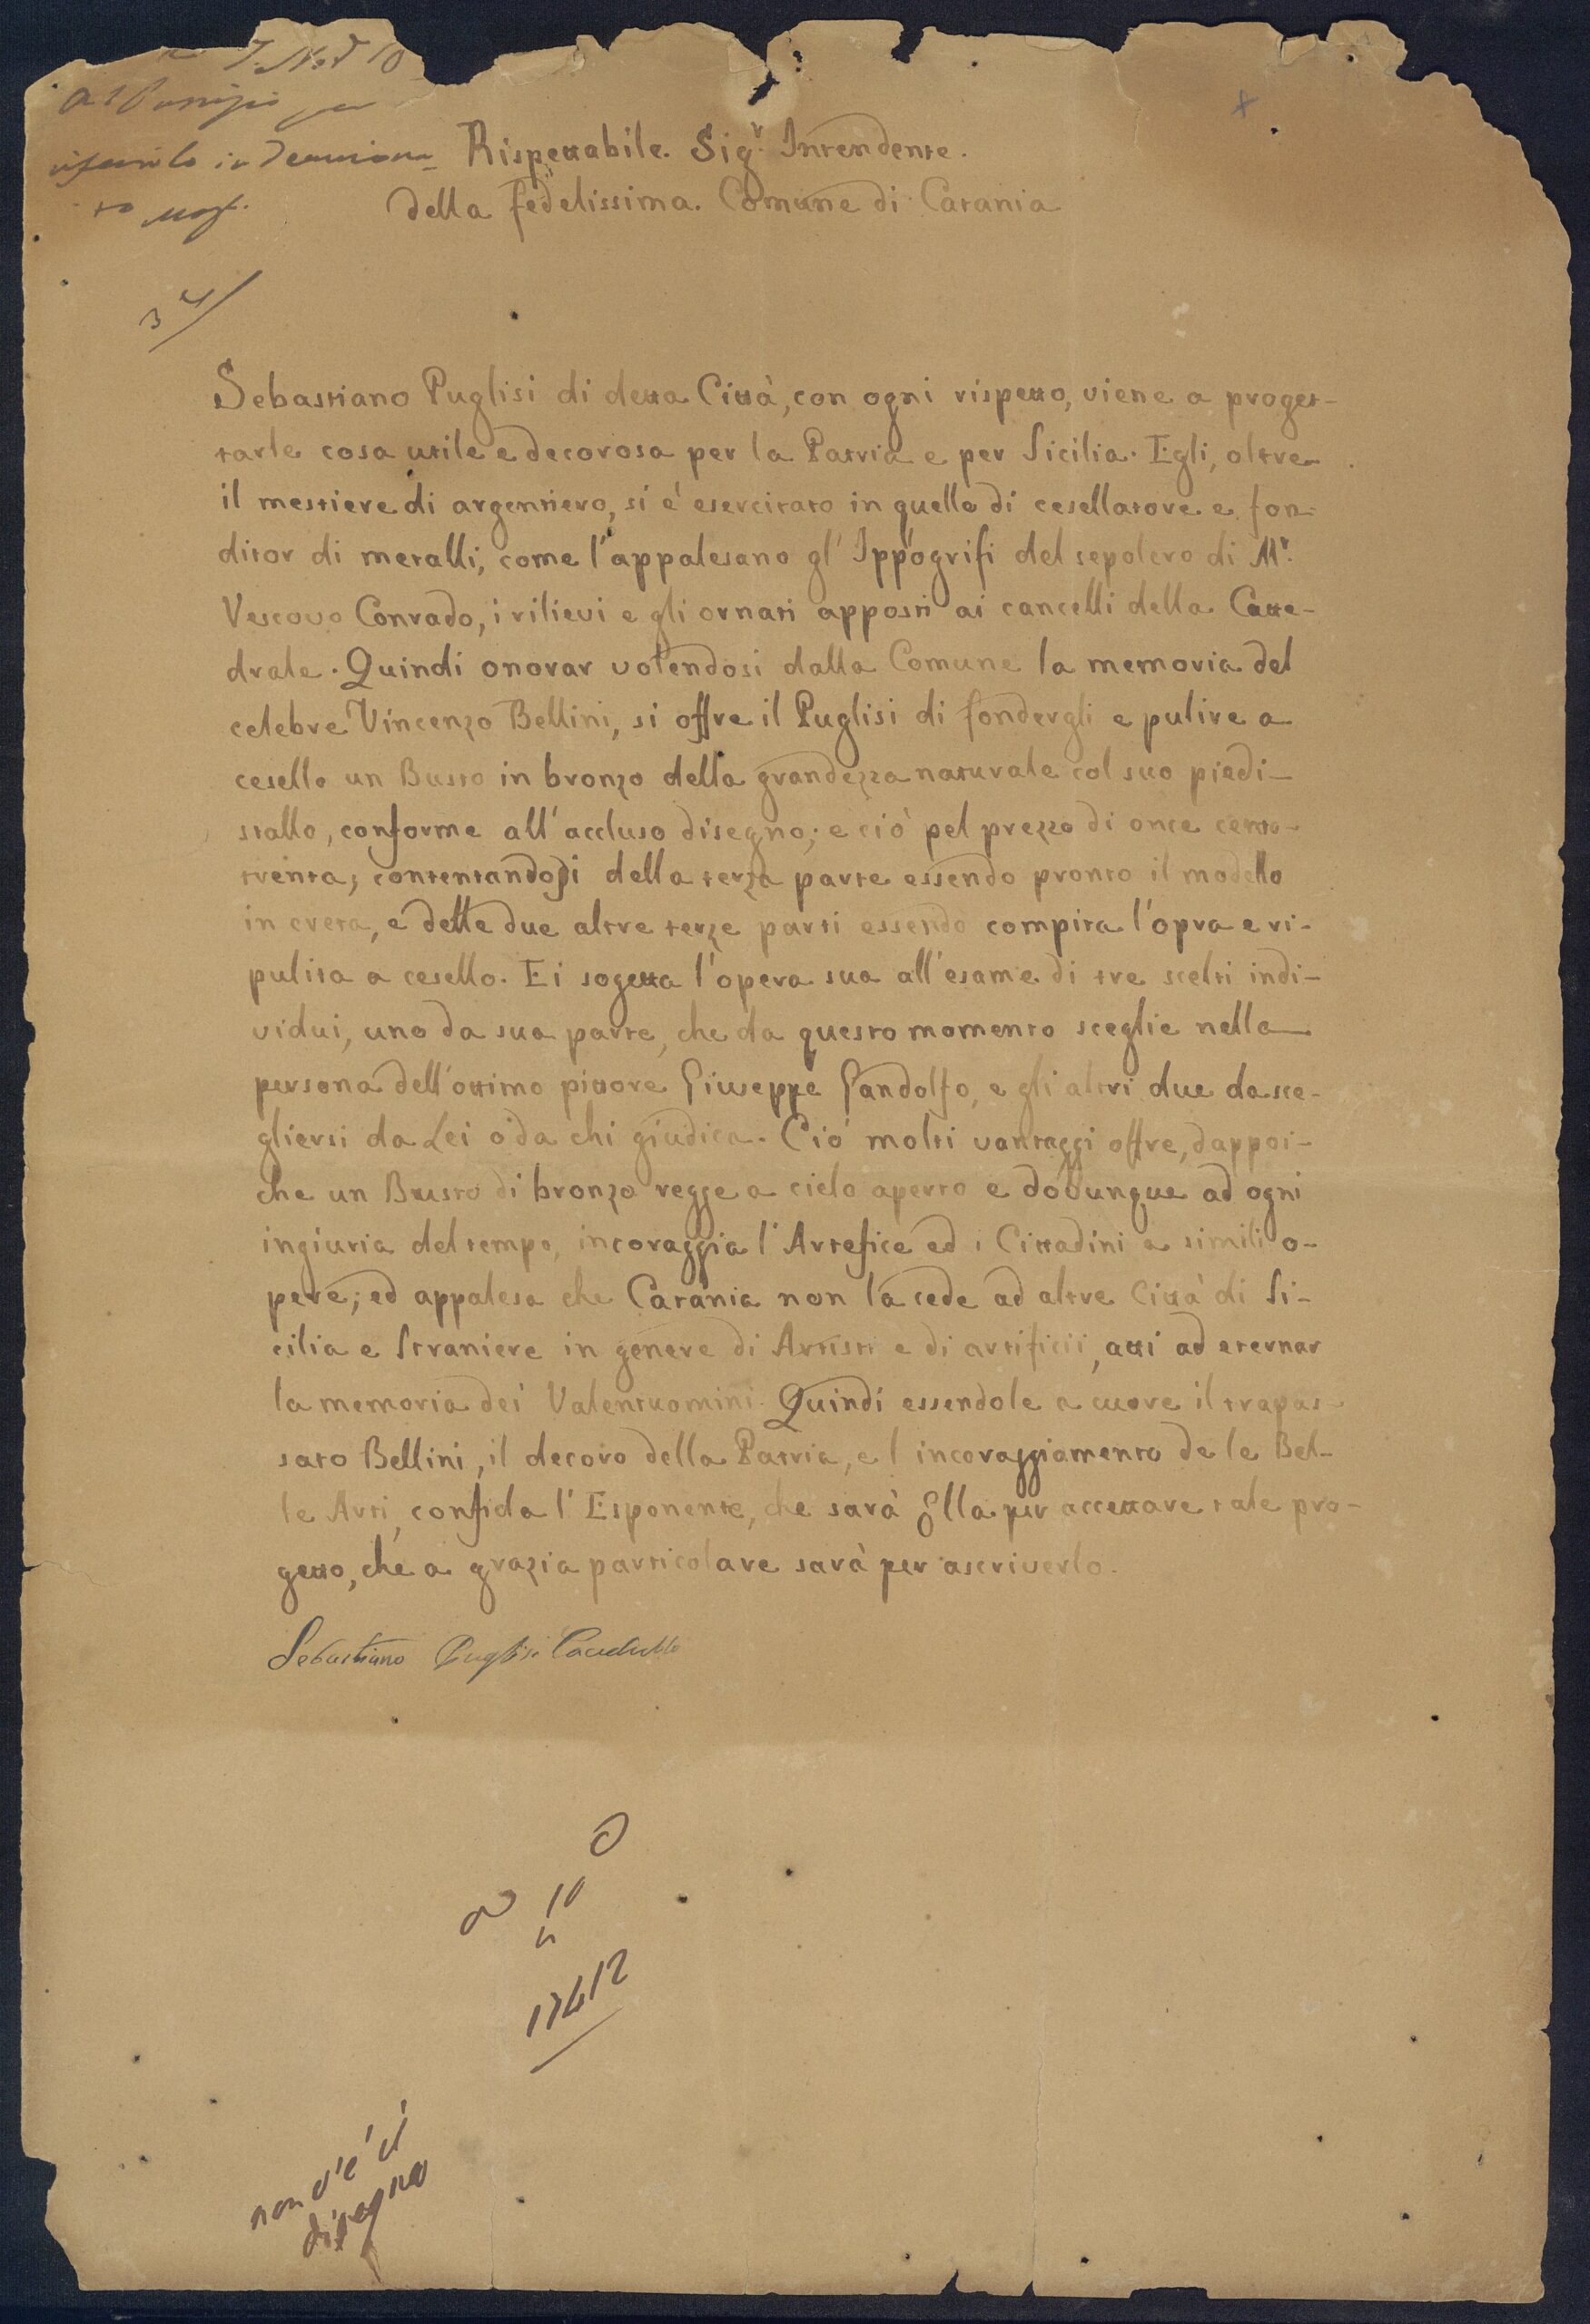 7. Nov 10
Rispettabile. Sig.r Intendente.
della fedelissima. Comune di Catania
34
Sebastiano Puglisi di detta Città, con ogni rispetto, viene a proget-
tarle cosa utile e decorosa per la Patria e per Sicilia. Egli, oltre
il mestiere di argentiero, si è esercitato in quello di cesellatore e fon-
ditor di metalli; come l'appalesano gl'Ippogrifi del sepolcro di M.r
Vescovo Conrado, i rilievi e gli ornati apposti ai cancelli della Catte-
drale. Quindi onorar volendosi dalla Comune la memoria del
celebre Vincenzo Bellini, si offre il Puglisi di fondergli e pulire a
cesello un Busto in bronzo della grandezza naturale col suo piedi-
stallo, conforme all'accluso disegno; e ciò pel prezzo di once cento-
trenta; contentandosi della terza parte essendo pronto il modello
in creta, e delle due altre terze parti essendo compita l'opra e ri-
pulita a cesello. Ei sogetta l'opera sua all'esame di tre scelti indi-
vidui, uno da sua parte, che da questo momento sceglie nella
persona dell'ottimo pittore Giuseppe Gandolfo, e gli altri due da sce-
gliersi da Lei o da chi giudica. Ciò molti vantaggi offre, dappoi-
che un Busto di bronzo regge a cielo aperto e dovunque ad ogni
ingiuria del tempo, incoraggia l'Artefice ed i Cittadini a simili o-
pere; ed appalesa che Catania non la cede ad altre Città di Si-
cilia e Straniere in genere di Artisti e di artificii, atti ad eternar
la memoria dei Valentuomini. Quindi essendole a cuore il trapas-
sato Bellini, il decoro della Patria, e l incoraggiamento de le Bel-
le Arti, confida l'Esponente, che sarà Ella per accettare tale pro-
getto, che a grazia particolare sarà per ascriverlo.
Sebastiano Puglisi
10
17412
non v'è il
disegno